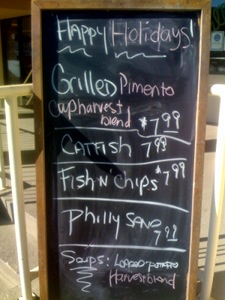 Happy Holidays!
Grilled Pimento
cup harvest
blend $7.99
CATFISH 7.99
FISH N CHIPS $7.99
Philly SAND
7.99
Soups: LOADED POTATO
Harvest blend